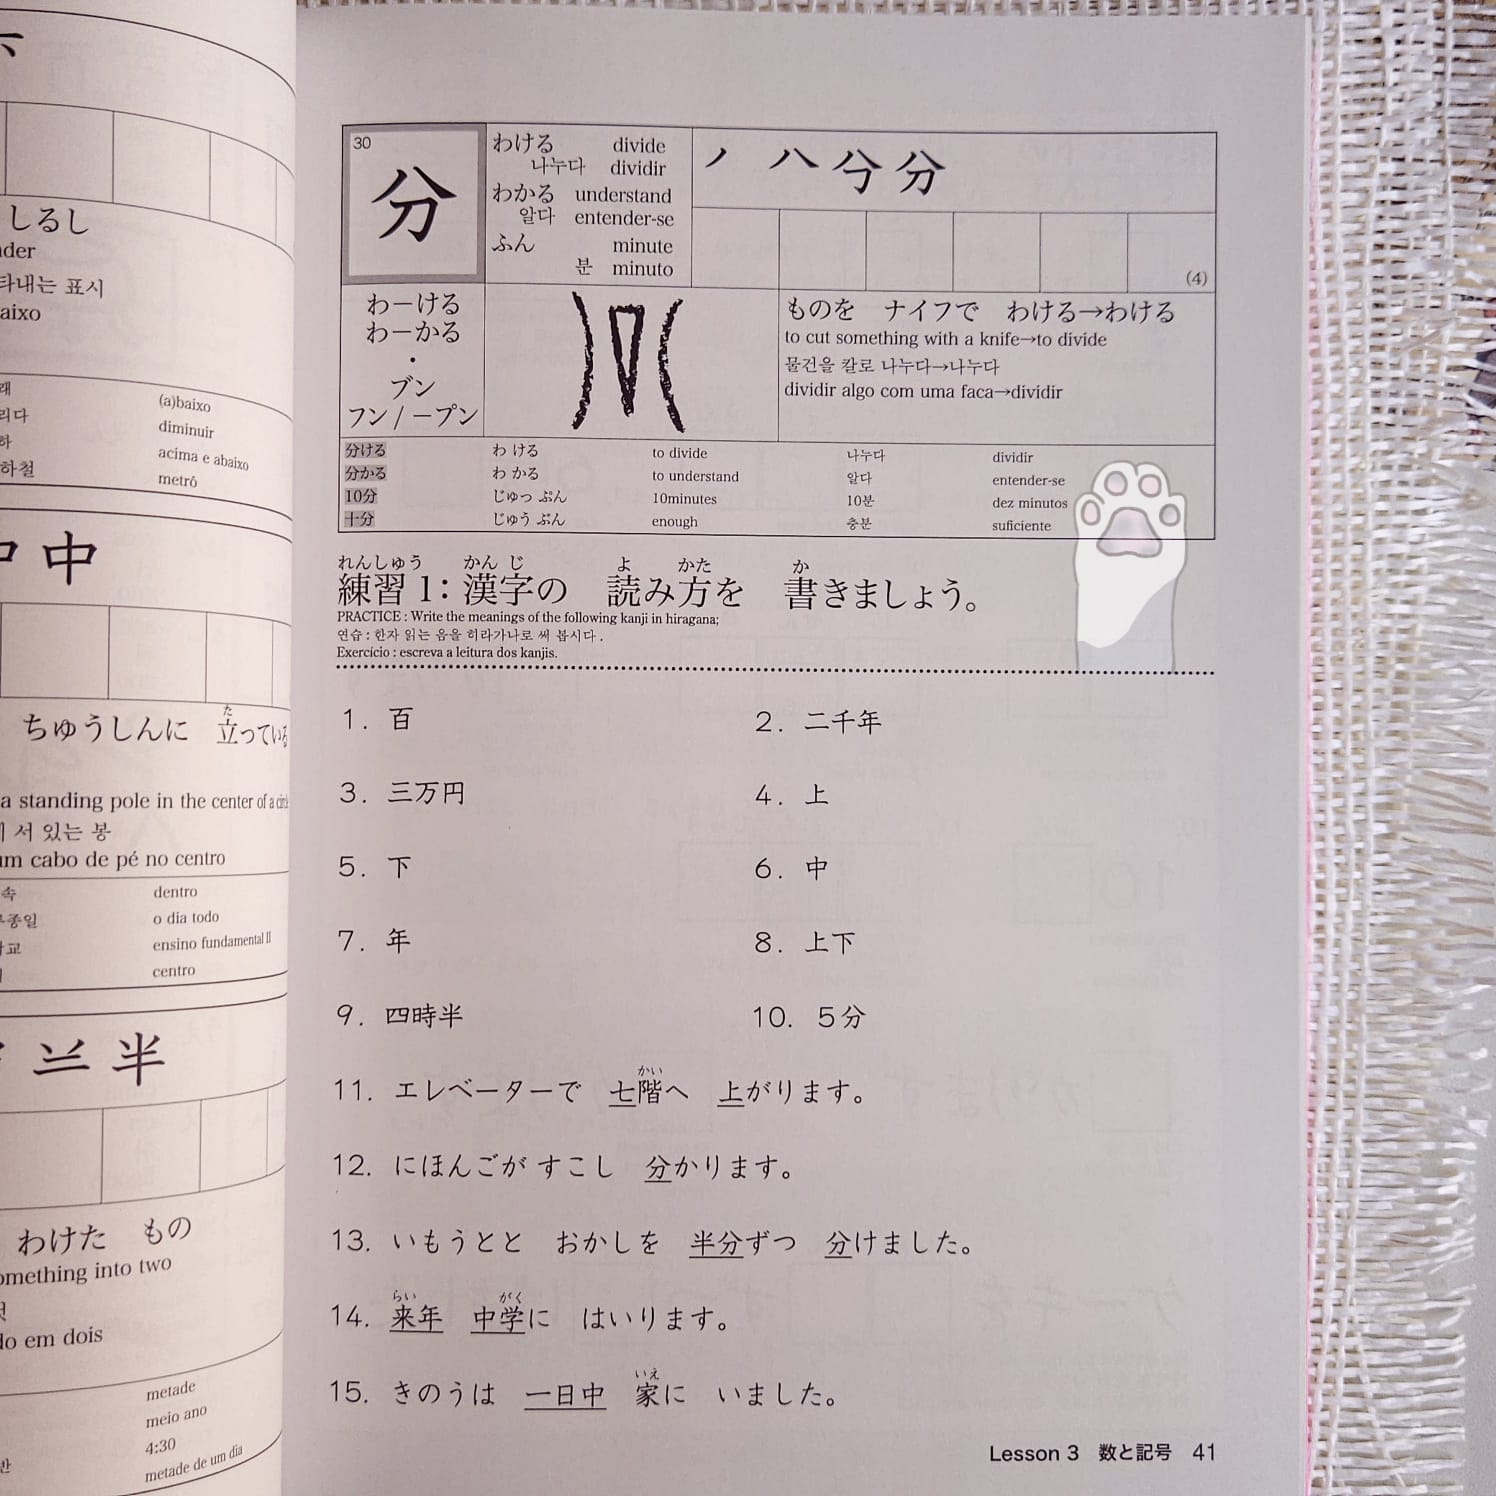 しるし
타내는 표시
(a)baixo
diminuir
acima e abaixo
metrô
中
ちゅうしんに 立っている
た
a standing pole in the center of a circle
서 있는 봉
um cabo de pé no centro
dentro
o dia todo
ensino fundamental II
centro
半
わけた もの
omething into two
do em dois
metade
meio ano
4:30
metade de um dia
30
分
わける divide
나누다 dividir
わかる understand
알다 entender-se
ふん minute
분 minuto
ノ 八 分 分
(4)
わ−ける
わ−かる
・
ブン
フン / −プン
ものを ナイフで わける→わける
to cut something with a knife→to divide
물건을 칼로 나누다→나누다
dividir algo com uma faca→dividir
分ける わ ける to divide 나누다 dividir
分かる わ かる to understand 알다 entender-se
10分 じゅっ ぷん 10minutes 10분 dez minutos
十分 じゅう ぶん enough 충분 suficiente
れんしゅう かん じ よ かた か
練習 1: 漢字の 読み方を 書きましょう。
PRACTICE : Write the meanings of the following kanji in hiragana;
연습 : 한자 읽는 음을 히라가나로 써 봅시다.
Exercício : escreva a leitura dos kanjis.
1. 百 2. 二千年
3. 三万円 4. 上
5. 下 6. 中
7. 年 8. 上下
9. 四時半 10. 5分
かい
11. エレベーターで 七階へ 上がります。
12. にほんごが すこし 分かります。
13. いもうとと おかしを 半分ずつ 分けました。
らい がく
14. 来年 中学に はいります。
いえ
15. きのうは 一日中 家に いました。
Lesson 3 数と記号 41